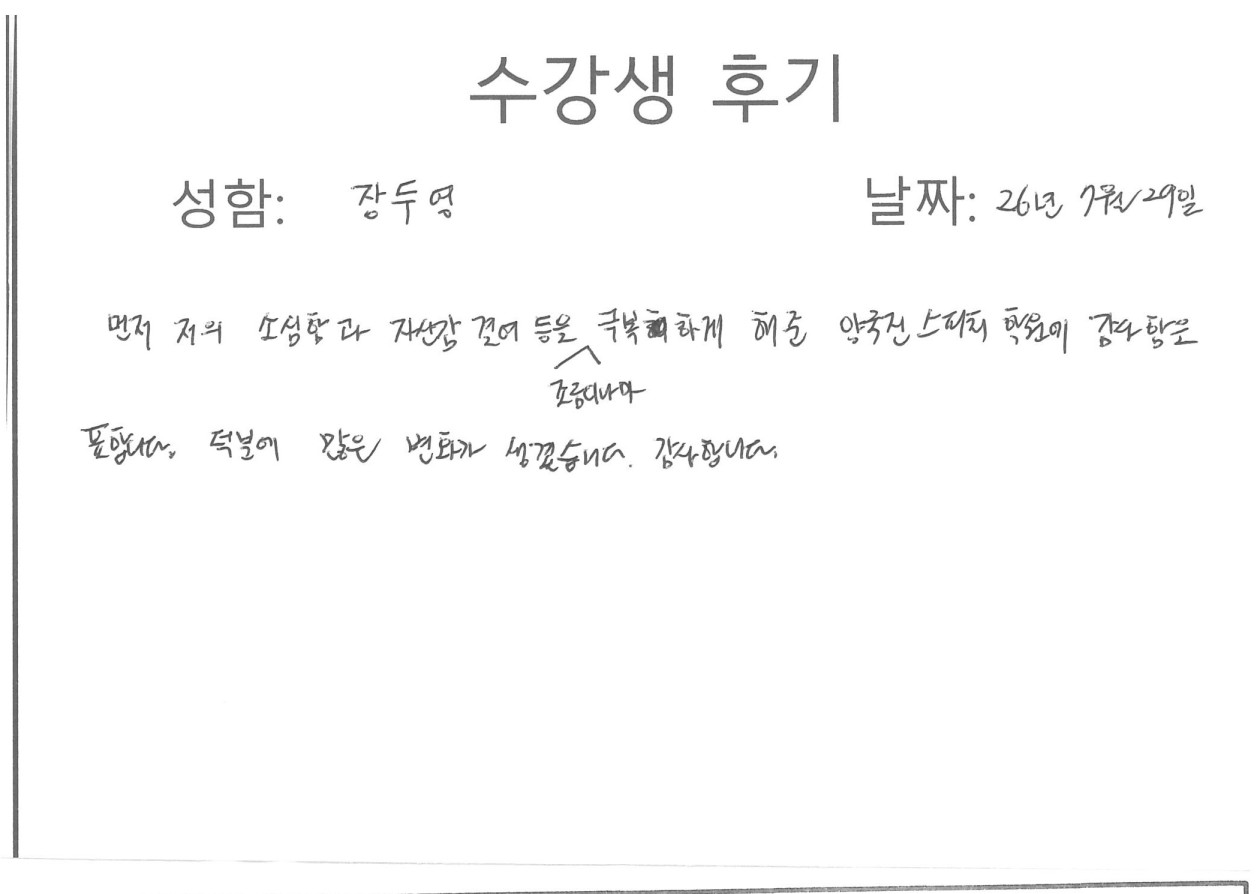 수강생 후기
성함: 장두영 날짜: 26년 7월 29일
먼저 저의 소심함과 자신감 결여 등을 극복하게 해준 양국진 스피치 학원에 감사함은
조금이나마
표합니다. 덕분에 많은 변화가 생겼습니다. 감사합니다.